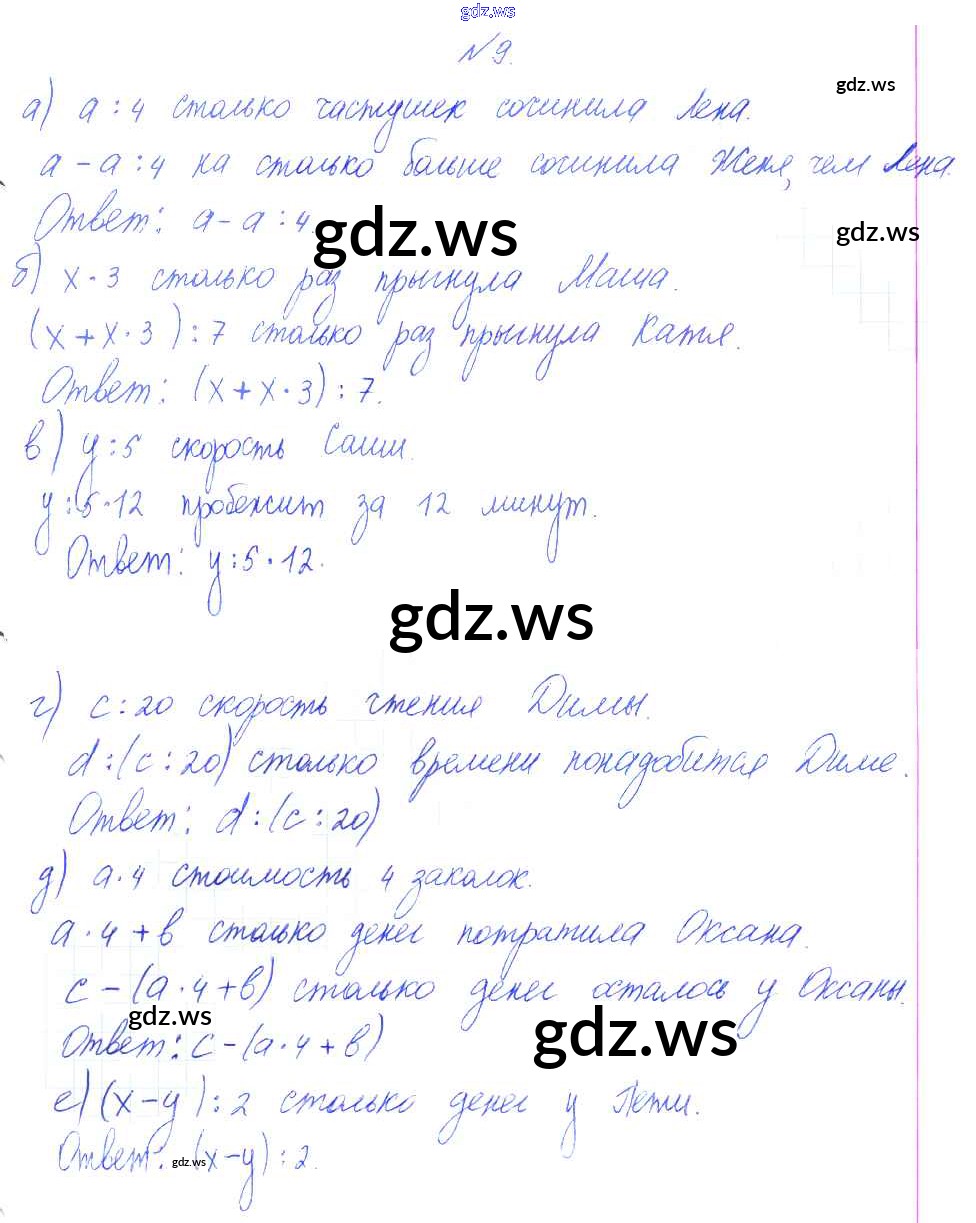 gdz.ws
№9.
gdz.ws
а) a : 4 столько частушек сочинила Лена.
a - a : 4 на столько больше сочинила Женя, чем Лена.
Ответ: a - a : 4.
gdz.ws
gdz.ws
б) x · 3 столько раз прыгнула Маша.
(x + x · 3) : 7 столько раз прыгнула Катя.
Ответ: (x + x · 3) : 7.
в) y : 5 скорость Саши.
y : 5 · 12 пробежит за 12 минут.
Ответ: y : 5 · 12.
gdz.ws
г) c : 20 скорость чтения Димы.
d : (c : 20) столько времени понадобится Диме.
Ответ: d : (c : 20)
д) a · 4 стоимость 4 заколок.
a · 4 + b столько денег потратила Оксана.
c - (a · 4 + b) столько денег осталось у Оксаны.
gdz.ws
gdz.ws
Ответ: c - (a · 4 + b)
е) (x - y) : 2 столько денег у Пети.
Ответ: (x - y) : 2.
gdz.ws